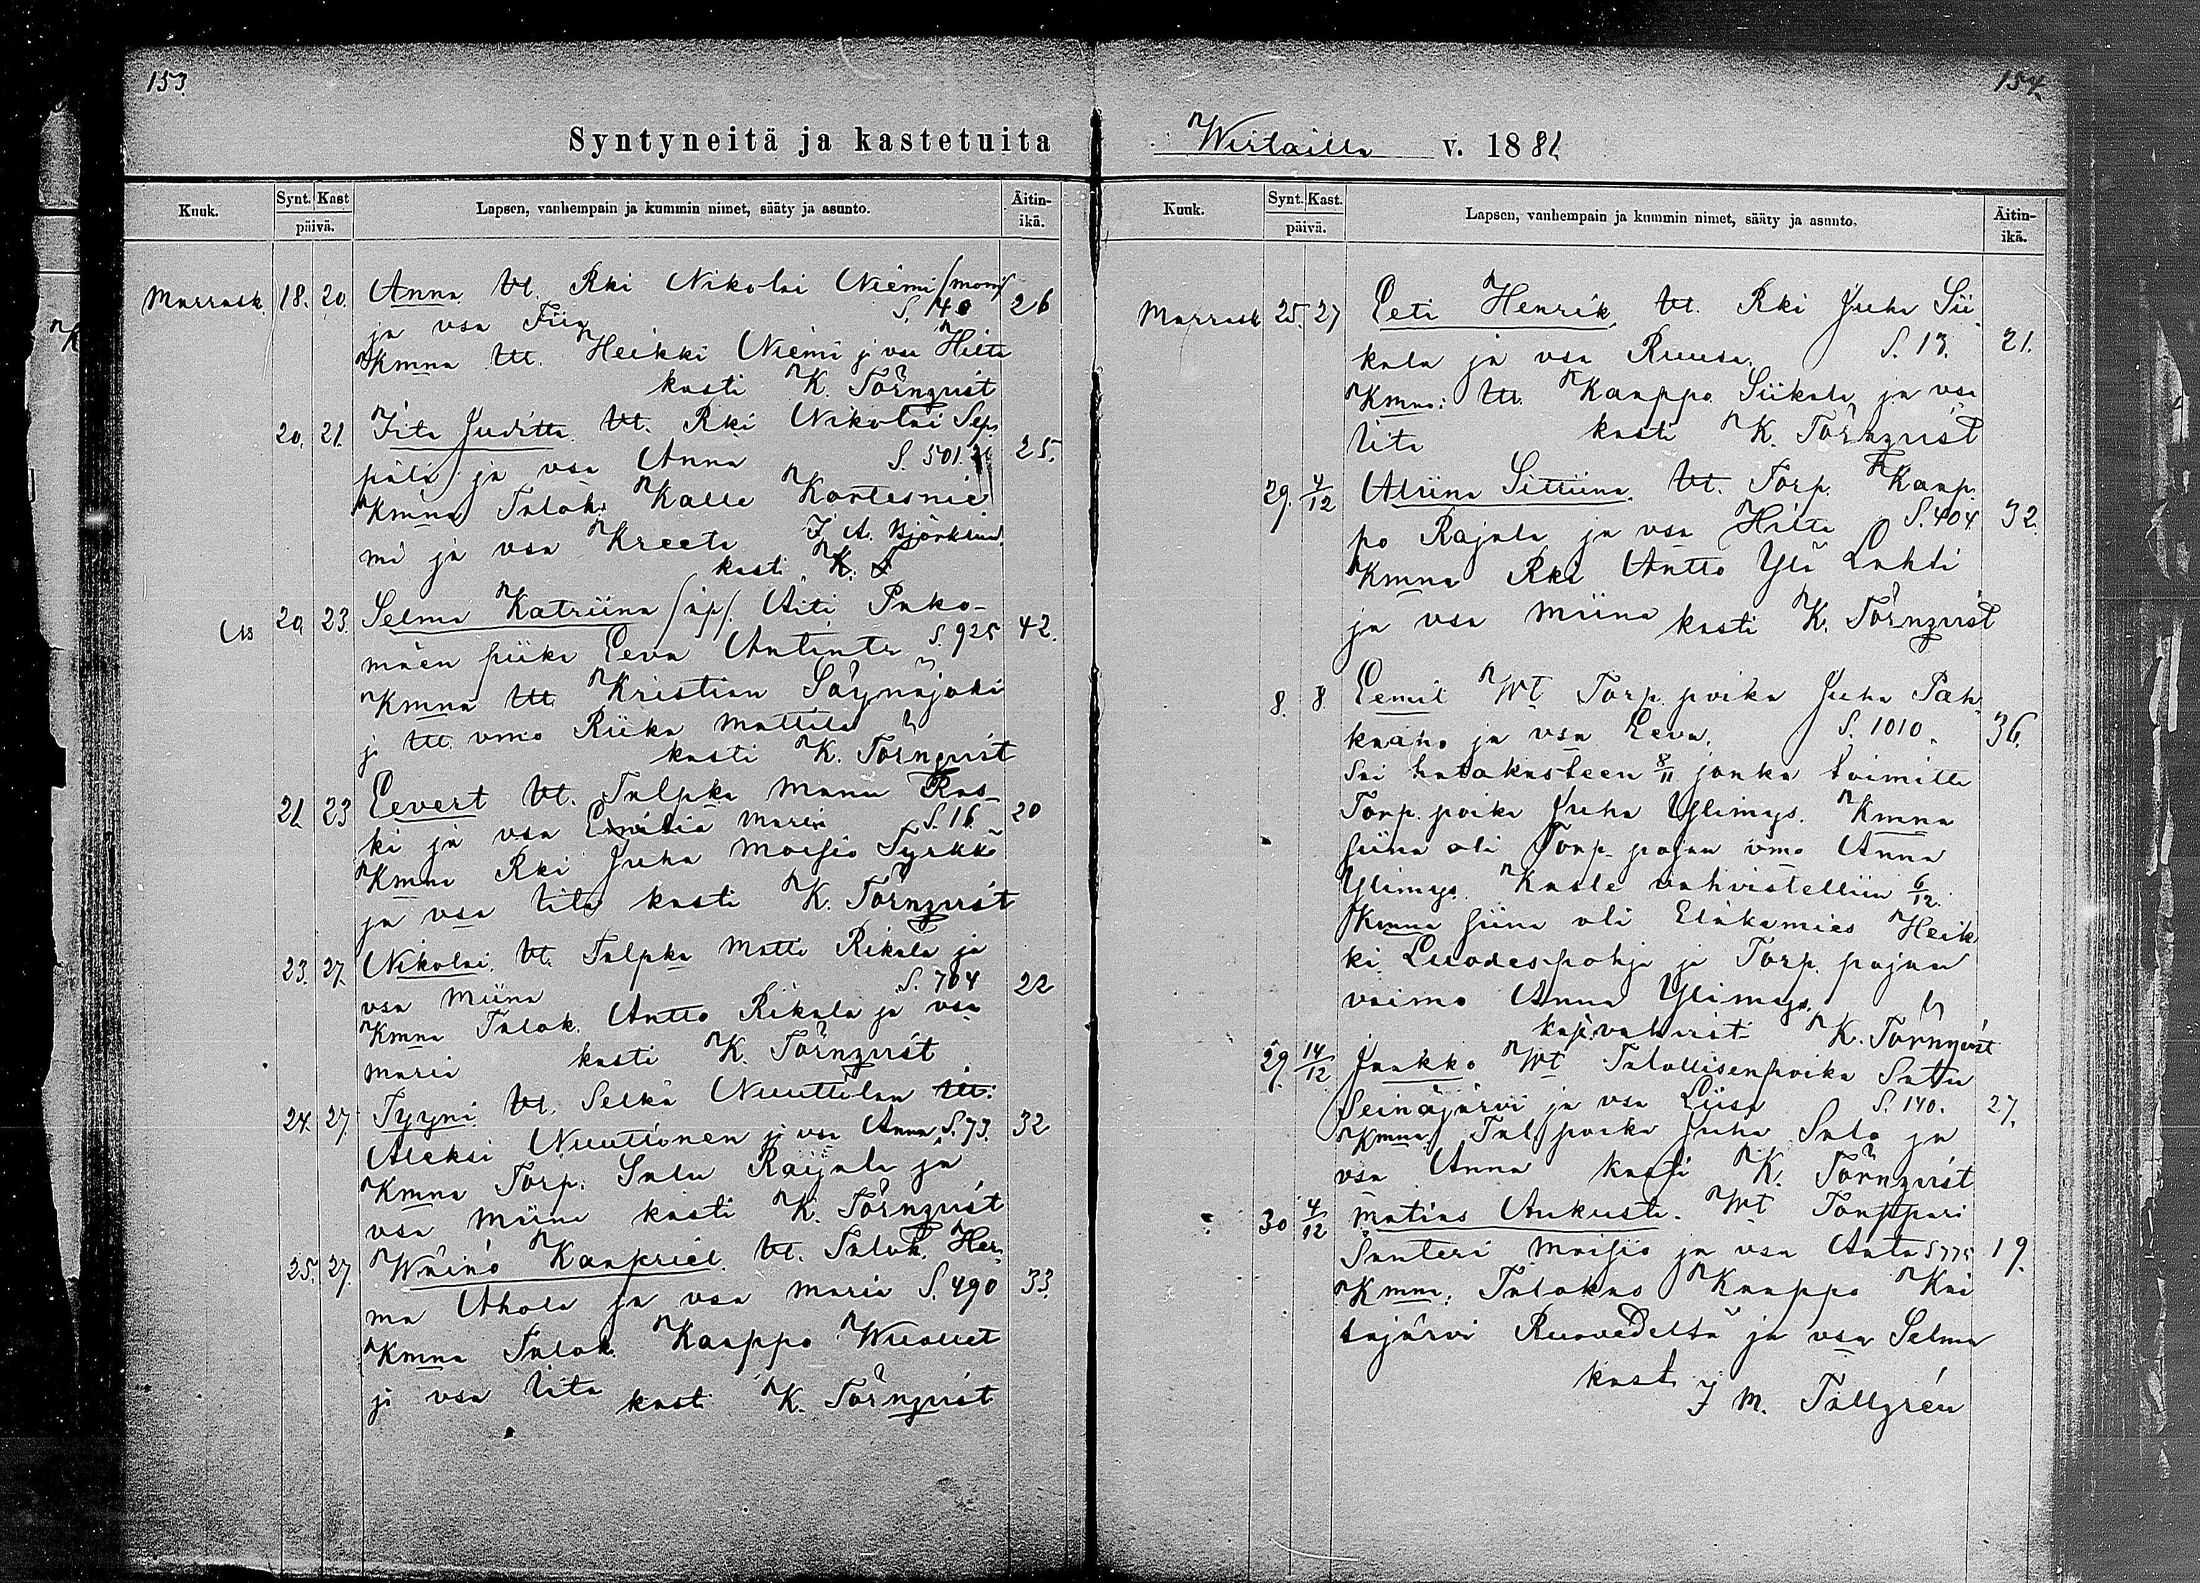 153.
Syntyneitä ja kastetuita
Kuuk.
Synt. Kast
päivä.
Lapsen, vanhempain ja kummin nimet, sääty ja asunto.
Äitin-
ikä.
Marrask. 18. 20. Anna Vt. Rki Nikolai Niemi 26
ja vsa Fiia S. 40
Kmna Itt. Heikki Niemi j vsa Hilta
kasti K. Törnqvist
20. 21. Iita Juditta Vt. Rki Nikolai Sep- 25.
pälä ja vsa Anna S. 501.
Kmna Talok. Kalle Kortesnie
mi ja vsa Kreeta J. A. Björklund.
kasti K. T
20 23. Selma Katriina /äp/. Äiti Pako- 42.
mäen piika Eeva Antintr S. 925
Kmna Itt Kristian Säynäjoki
j Itt. vmo Riika Mattila
kasti K. Törnqvist
21. 23 Eevert Vt. Talpka Manu Kos- 20
ki ja vsa Emilia Maria S. 16.
Kmna Rki Juha Moisio Tyrkkö
ja vsa Iita kasti K. Törnqvist
23. 27. Nikolai Vt. Talpka Matti Rikala ja 22
vsa Miina S. 704
Kmna Talok. Antto Rikala ja vsa
Maria kasti K. Törnqvist
24. 27. Tyyni Vt. Selkä Nuuttilan Itt. 32
Aleksi Nuutionen j vsa Anna S. 73.
Kmna Torp. Salu Raijala ja
vsa Miina kasti K. Törnqvist
25. 27. Wäinö Kaapriel Vt. Talok. Her- 33.
ma Ahola ja vsa Maria S. 490
Kmna Talok. Kaappo Wuollet
j vsa Iita kasti K. Törnqvist
154.
Wirtailla v. 1881.
Kuuk.
Synt. Kast.
päivä.
Lapsen, vanhempain ja kummin nimet, sääty ja asunto.
Äitin-
ikä.
Marrask 25. 27 Eeti Henrik Vt. Rki Juha Sii- 21.
kala ja vsa Ruusa S. 13.
Kmna: Itt. Kaappo Siikala ja vsa
Iita kasti K. Törnqvist
29. 4/12 Alviina Sitviina Vt. Torp. Kaap- 32.
po Rajala ja vsa Hilta S. 404
Kmna Rki Antto Yli Lahti
ja vsa Miina kasti K. Törnqvist
8. 8 Eemil Wt Torp. poika Juha Pah- 36.
kaaho ja vsa Eeva. S. 1010
Sai hätäkasteen 8/11 jonka toimitti
Torp. poika Juha Ylimys. Kmna
siinä oli Torp. pojan vmo Anna
Ylimys. Kaste vahvistettiin 6/12.
Kmna siinä oli Eläkemies Heik
ki Luodespohja j Torp. pojan
vaimo Anna Ylimys,
kast. vahvist. K. Törnqvist
29. 14/12 Jaakko Wt Talollisenpoika Satu 27.
Seinäjärvi ja vsa Liisa S. 140.
Kmna Tal. poika Juha Salo ja
vsa Anna kasti K. Törnqvist
30 4/12 Matias Aukusti. Wt Torppari 19.
Santeri Moisio ja vsa Aata S 775
Kmna, Talokas Kaappo Kai
tajärvi Ruovedeltä ja vsa Selma
kast. J M. Tallgrén